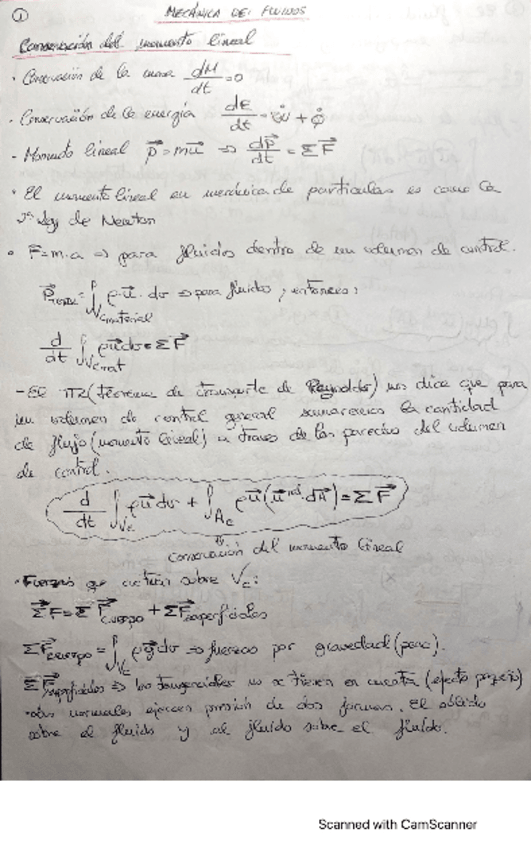 ① MECÁNICA DE FLUIDOS
Conservación del momento lineal
· Conservación de la masa dM/dt = 0
· Conservación de la energía dE/dt = Ẇ + Q̇
- Momento lineal p⃗ = mu⃗ ⇒ dp⃗/dt = ΣF⃗
· El momento lineal en mecánica de partículas es como la
2ª ley de Newton
· F = m·a ⇒ para fluidos dentro de un volumen de control.
∫Vmaterial ρ·u⃗·dv ⇒ para fluidos, entonces:
d/dt ∫Vcmat ρu⃗dv = ΣF⃗
- El TTR (teorema de transporte de Reynolds) nos dice que para
un volumen de control general sumaremos la cantidad
de flujo (momento lineal) a traves de las paredes del volumen
de control.
d/dt ∫Vc ρu⃗dv + ∫Ac ρu⃗(u⃗rel·dA⃗) = ΣF⃗
conservación del momento lineal
· Fuerzas que actúan sobre Vc:
ΣF⃗ = ΣF⃗cuerpo + ΣF⃗superficiales
ΣF⃗cuerpo = ∫Vc ρg⃗dv ⇒ fuerzas por gravedad (peso).
ΣF⃗superficiales ⇒ las tangenciales no se tienen en cuenta (efecto pequeño)
· Las normales ejercen presión de dos formas. El sólido
sobre el fluido y el fluido sobre el fluido.
Scanned with CamScanner